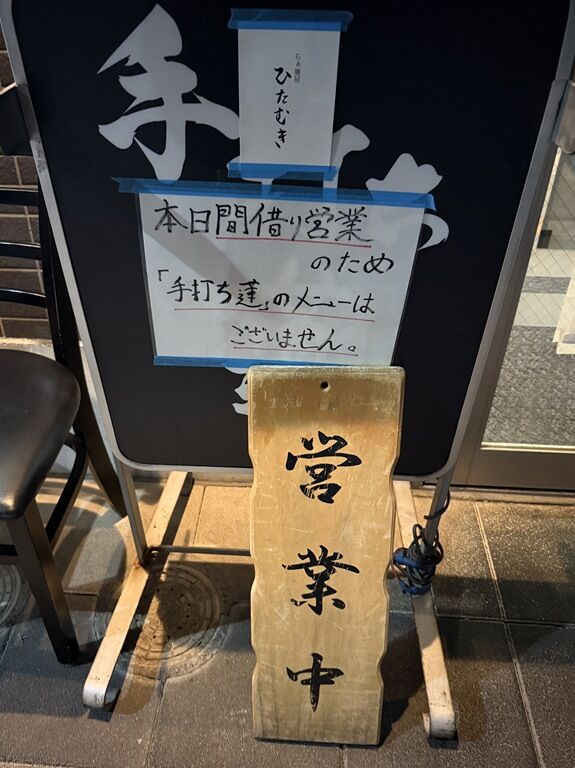 手
らぁ麺屋
ひたむき
ち
本日間借り営業
のため
「手打ち蓮」のメニューは
ございません。
営業中